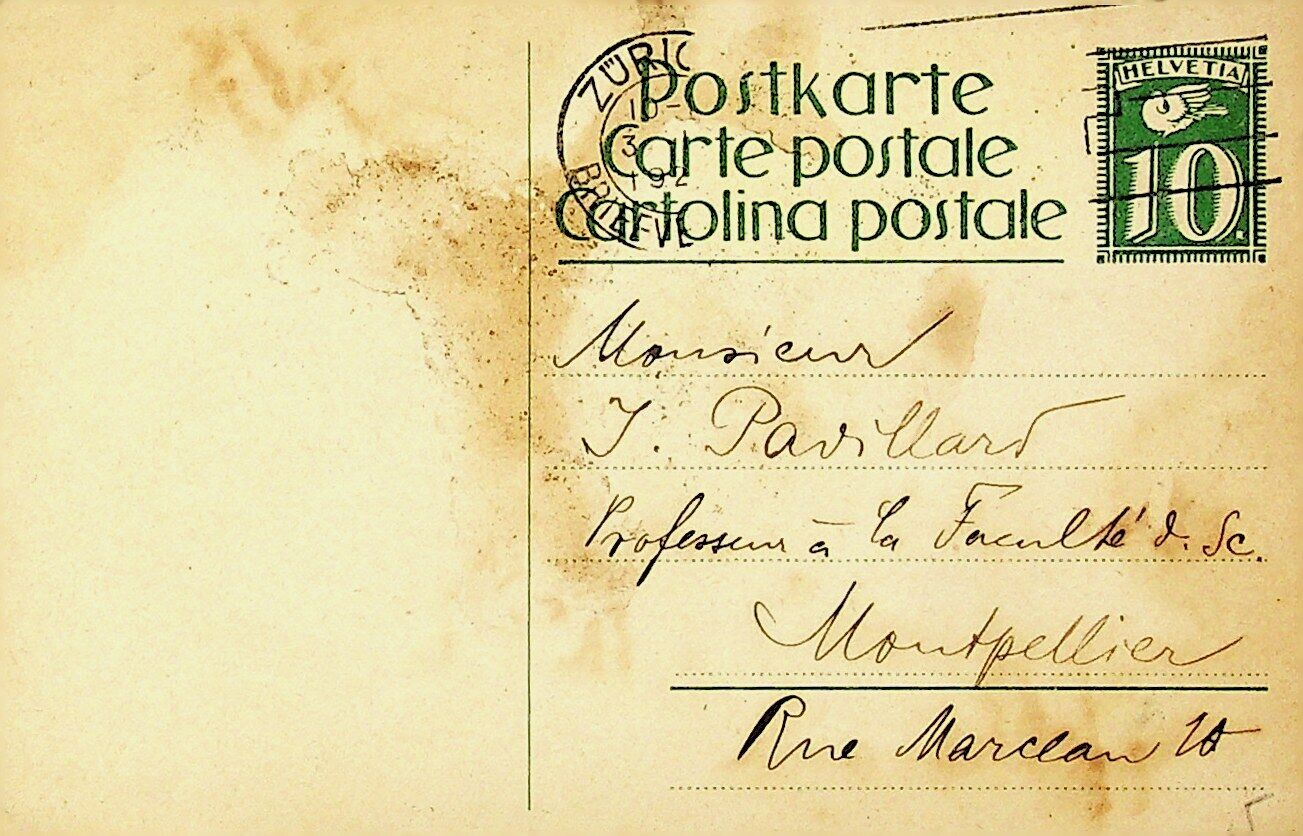 Postkarte
Carte postale
Cartolina postale
ZÜRIC
3
192
BRIEFVE
HELVETIA
10.
Monsieur
J. Pavillard
Professeur à la Faculté d. Sc.
Montpellier
Rue Marceau